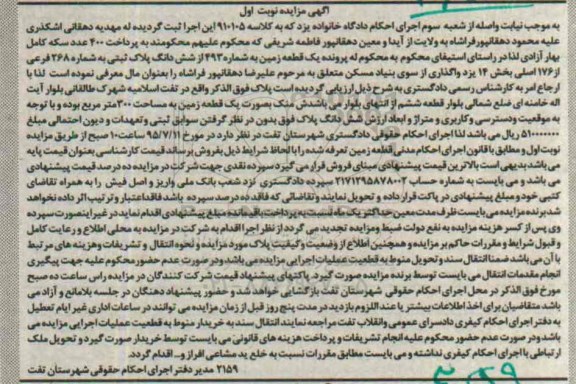 آگهی مزایده نوبت اول
به موجب نیابت واصله از شعبه سوم اجرای احکام دادگاه خانواده یزد که به کلاسه ۹۱۰۱۰۵ این اجرا ثبت گردیده له مهدیه دهقانی اشکذری
علیه محمود دهقانپور فراشاه به ولایت از آیدا و معین دهقانپور فاطمه شریفی که محکوم علیهم محکومند به پرداخت ۴۰۰ عدد سکه کامل
بهار آزادی لذا در راستای استیفای محکوم به محکوم له پرونده یک قطعه زمین به شماره ۴۹۳ از شش دانگ پلاک ثبتی به شماره ۲۶۸ فرعی
از ۱۷۶ اصلی بخش ۱۴ یزد واگذاری از سوی بنیاد مسکن متعلق به مرحوم علیرضا دهقانپور فراشاه را بعنوان مال معرفی نموده است لذا با
ارجاع امر به کارشناس رسمی دادگستری به شرح ذیل ارزیابی گردیده است پلاک فوق الذکر واقع در تفت اسلامیه شهرک طالقانی بلوار آیت
اله خامنه ای ضلع شمالی بلوار قطعه ششم از انتهای بلوار می باشدش ملک بصورت یک قطعه زمین به مساحت ۳۰۰ متر مربع بوده و با توجه
به موقعیت ودسترسی و کاربری و متراژ و ابعاد ارزش شش دانگ پلاک فوق بدون در نظر گرفتن سوابق ثبتی وتعهدات و دیون احتمالی مبلغ
۵۱۰۰۰۰۰۰۰ ریال می باشد لذا اجرای احکام حقوقی دادگستری شهرستان تفت در نظر دارد در مورخ ۹۵/۷/۱۱ ساعت ۱۰ صبح از طریق مزایده
نوبت اول و مطابق با قانون اجرای احکام مدنی قطعه زمین تعرفه شده را با لحاظ شرایط ذیل بفروش برساند قیمت کارشناسی بعنوان قیمت پایه
می باشد بدیهی است بالاترین قیمت پیشنهادی مبنای فروش قرار می گیرد سپرده نقدی جهت شرکت در مزایده ده درصد قیمت پیشنهادی
می باشد و می بایست به شماره حساب ۲۱۷۱۲۹۵۸۷۸۰۰۲ سپرده دادگستری نزد شعب بانک ملی واریز و اصل فیش را به همراه تقاضای
کتبی خود و مبلغ پیشنهادی در پاکت قرار داده و تحویل نمایند وتقاضائی که فاقد ده درصد سپرده باشد فاقد اعتبار و ترتیب اثر داده نخواهد
شد برنده مزایده می بایست ظرف مدت معین حداکثر یک ماه نسبت به پرداخت باقیمانده مبلغ پیشنهادی اقدام نماید در غیر اینصورت سپرده
وی پس از کسر هزینه مزایده به نفع دولت ضبط ومزایده تجدید می گردد از نظر اجرا اقدام به شرکت در مزایده به محلی اطلاع و رعایت کامل
و قبول شرایط و مقررات حاکم بر مزایده و همچنین اطلاع از وضعیت وکیفیت پلاک مورد مزایده و نحوه انتقال و تشریفات وهزینه های مرتبط
با آن می باشد ضمنا انتقال سند و تحویل منوط به قطعیت عملیات اجرایی مزایده می باشد ودر صورت عدم حضور محکوم علیه جهت پیگیری
انجام مقدمات انتقال می بایست توسط برنده مزایده صورت گیرد. پاکتهای پیشنهاد قیمت شرکت کنندگان در مزایده راس ساعت ده صبح
مورخ فوق الذکر در محل اجرای احکام حقوقی شهرستان تفت بازگشایی خواهد شد و حضور پیشنهاد دهنگان در جلسه بلامانع و آزاد می
باشد متقاضیان برای اخذ اطلاعات بیشتر یا عندالزوم بازدید در مدت پنج روز قبل از زمان مزایده می توانند در ساعات اداری غیر ایام تعطیل
به دفتر اجرای احکام کیفری دادسرای عمومی وانقلاب تفت مراجعه نمایند انتقال سند به خریدار منوط به قطعیت عملیات اجرایی مزایده می
باشد ودر صورت عدم حضور محکوم علیه انجام تشریفات و پرداخت هزینه های قانونی می بایست توسط خریدار صورت گیرد و تحویل ملک
ارتباطی با اجرای احکام کیفری نداشته و می بایست مطابق مقررات نسبت به خلع ید مشاعی افراز و... اقدام گردد.
۲۱۵۹ مدیر دفتر اجرای احکام حقوقی شهرستان تفت